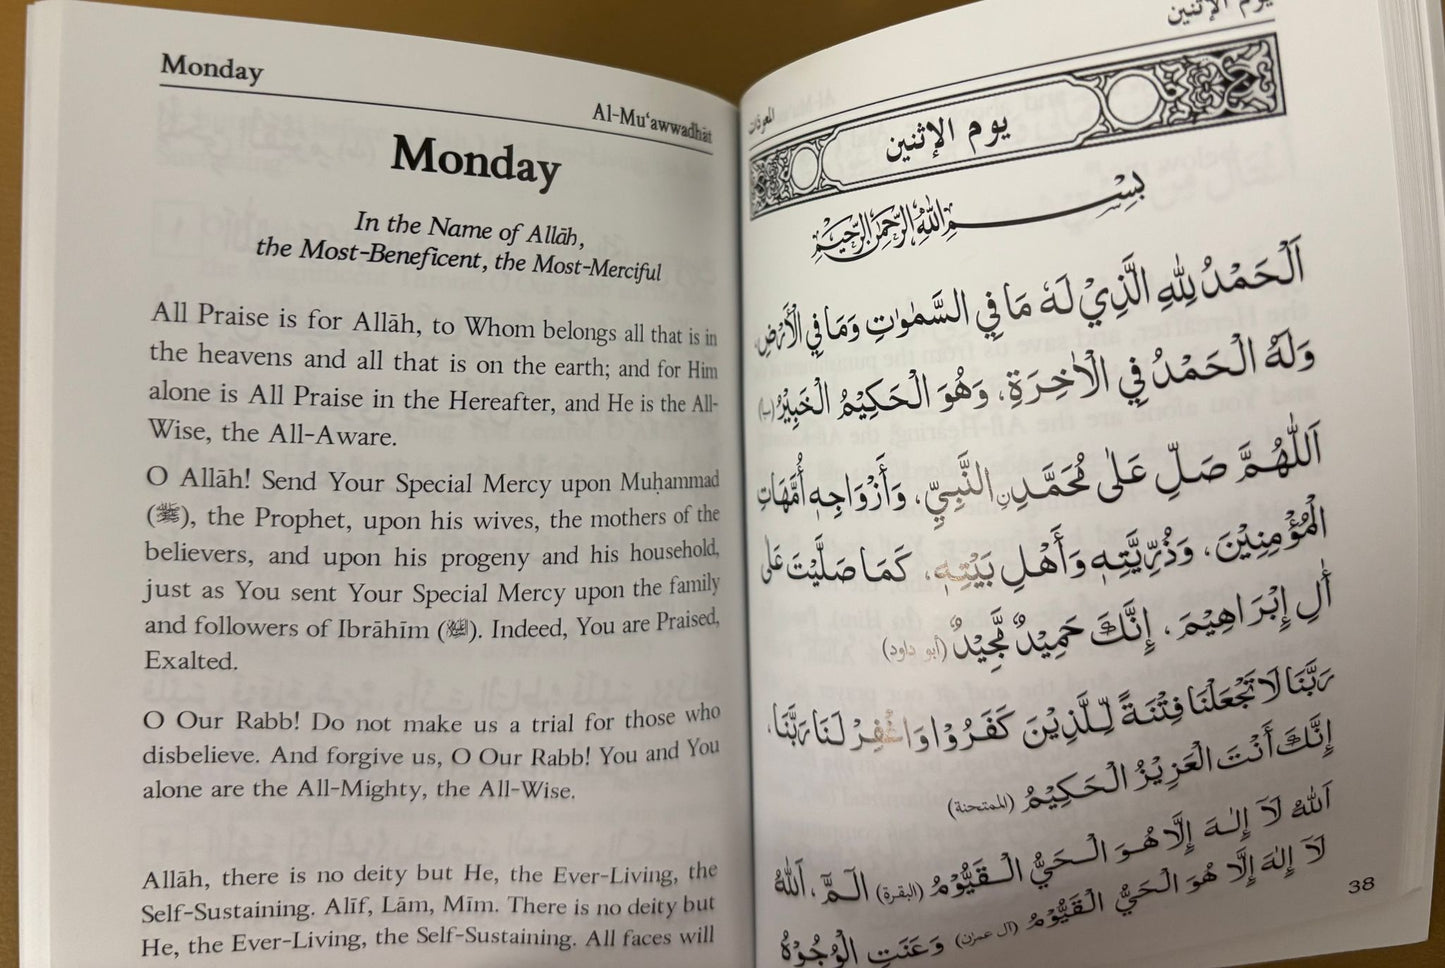 Monday
Al-Mu‘awwadhāt
Monday
In the Name of Allāh,
the Most-Beneficent, the Most-Merciful
All Praise is for Allāh, to Whom belongs all that is in
the heavens and all that is on the earth; and for Him
alone is All Praise in the Hereafter, and He is the All-
Wise, the All-Aware.
O Allāh! Send Your Special Mercy upon Muḥammad
(ﷺ), the Prophet, upon his wives, the mothers of the
believers, and upon his progeny and his household,
just as You sent Your Special Mercy upon the family
and followers of Ibrāhīm (). Indeed, You are Praised,
Exalted.
O Our Rabb! Do not make us a trial for those who
disbelieve. And forgive us, O Our Rabb! You and You
alone are the All-Mighty, the All-Wise.
Allāh, there is no deity but He, the Ever-Living, the
Self-Sustaining. Alīf, Lām, Mīm. There is no deity but
He, the Ever-Living, the Self-Sustaining. All faces will
يوم الإثنين
يوم الإثنين
بِسْمِ اللهِ الرَّحْمٰنِ الرَّحِيْمِ
اَلْحَمْدُ لِلّٰهِ الَّذِيْ لَهٗ مَا فِي السَّمٰوٰتِ وَمَا فِي الْأَرْضِ،
وَلَهُ الْحَمْدُ فِي الْاٰخِرَةِ، وَهُوَ الْحَكِيْمُ الْخَبِيْرُ
اَللّٰهُمَّ صَلِّ عَلٰى مُحَمَّدِنِ النَّبِيِّ، وَأَزْوَاجِهٖ أُمَّهَاتِ
الْمُؤْمِنِيْنَ، وَذُرِّيَّتِهٖ وَأَهْلِ بَيْتِهٖ، كَمَا صَلَّيْتَ عَلٰى
اٰلِ إِبْرَاهِيْمَ، إِنَّكَ حَمِيْدٌ مَّجِيْدٌ (أبو داود)
رَبَّنَا لَا تَجْعَلْنَا فِتْنَةً لِّلَّذِيْنَ كَفَرُوْا وَاغْفِرْ لَنَا رَبَّنَا،
إِنَّكَ أَنْتَ الْعَزِيْزُ الْحَكِيْمُ (الممتحنة)
اَللهُ لَآ إِلٰهَ إِلَّا هُوَ الْحَيُّ الْقَيُّوْمُ (البقرة) الٓمّٓ، اَللهُ
لَآ إِلٰهَ إِلَّا هُوَ الْحَيُّ الْقَيُّوْمُ (آل عمران) وَعَنَتِ الْوُجُوْهُ
38